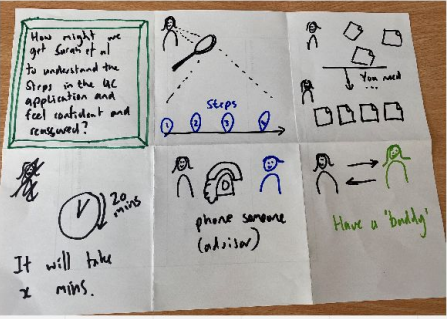 How might we
get Sarah et al
to understand the
Steps in the UC
application and
feel confident and
reassured?
Steps
1 2 3 4
You need
...
20
mins
It will take
x mins.
phone someone
(advisor)
Have a 'buddy'